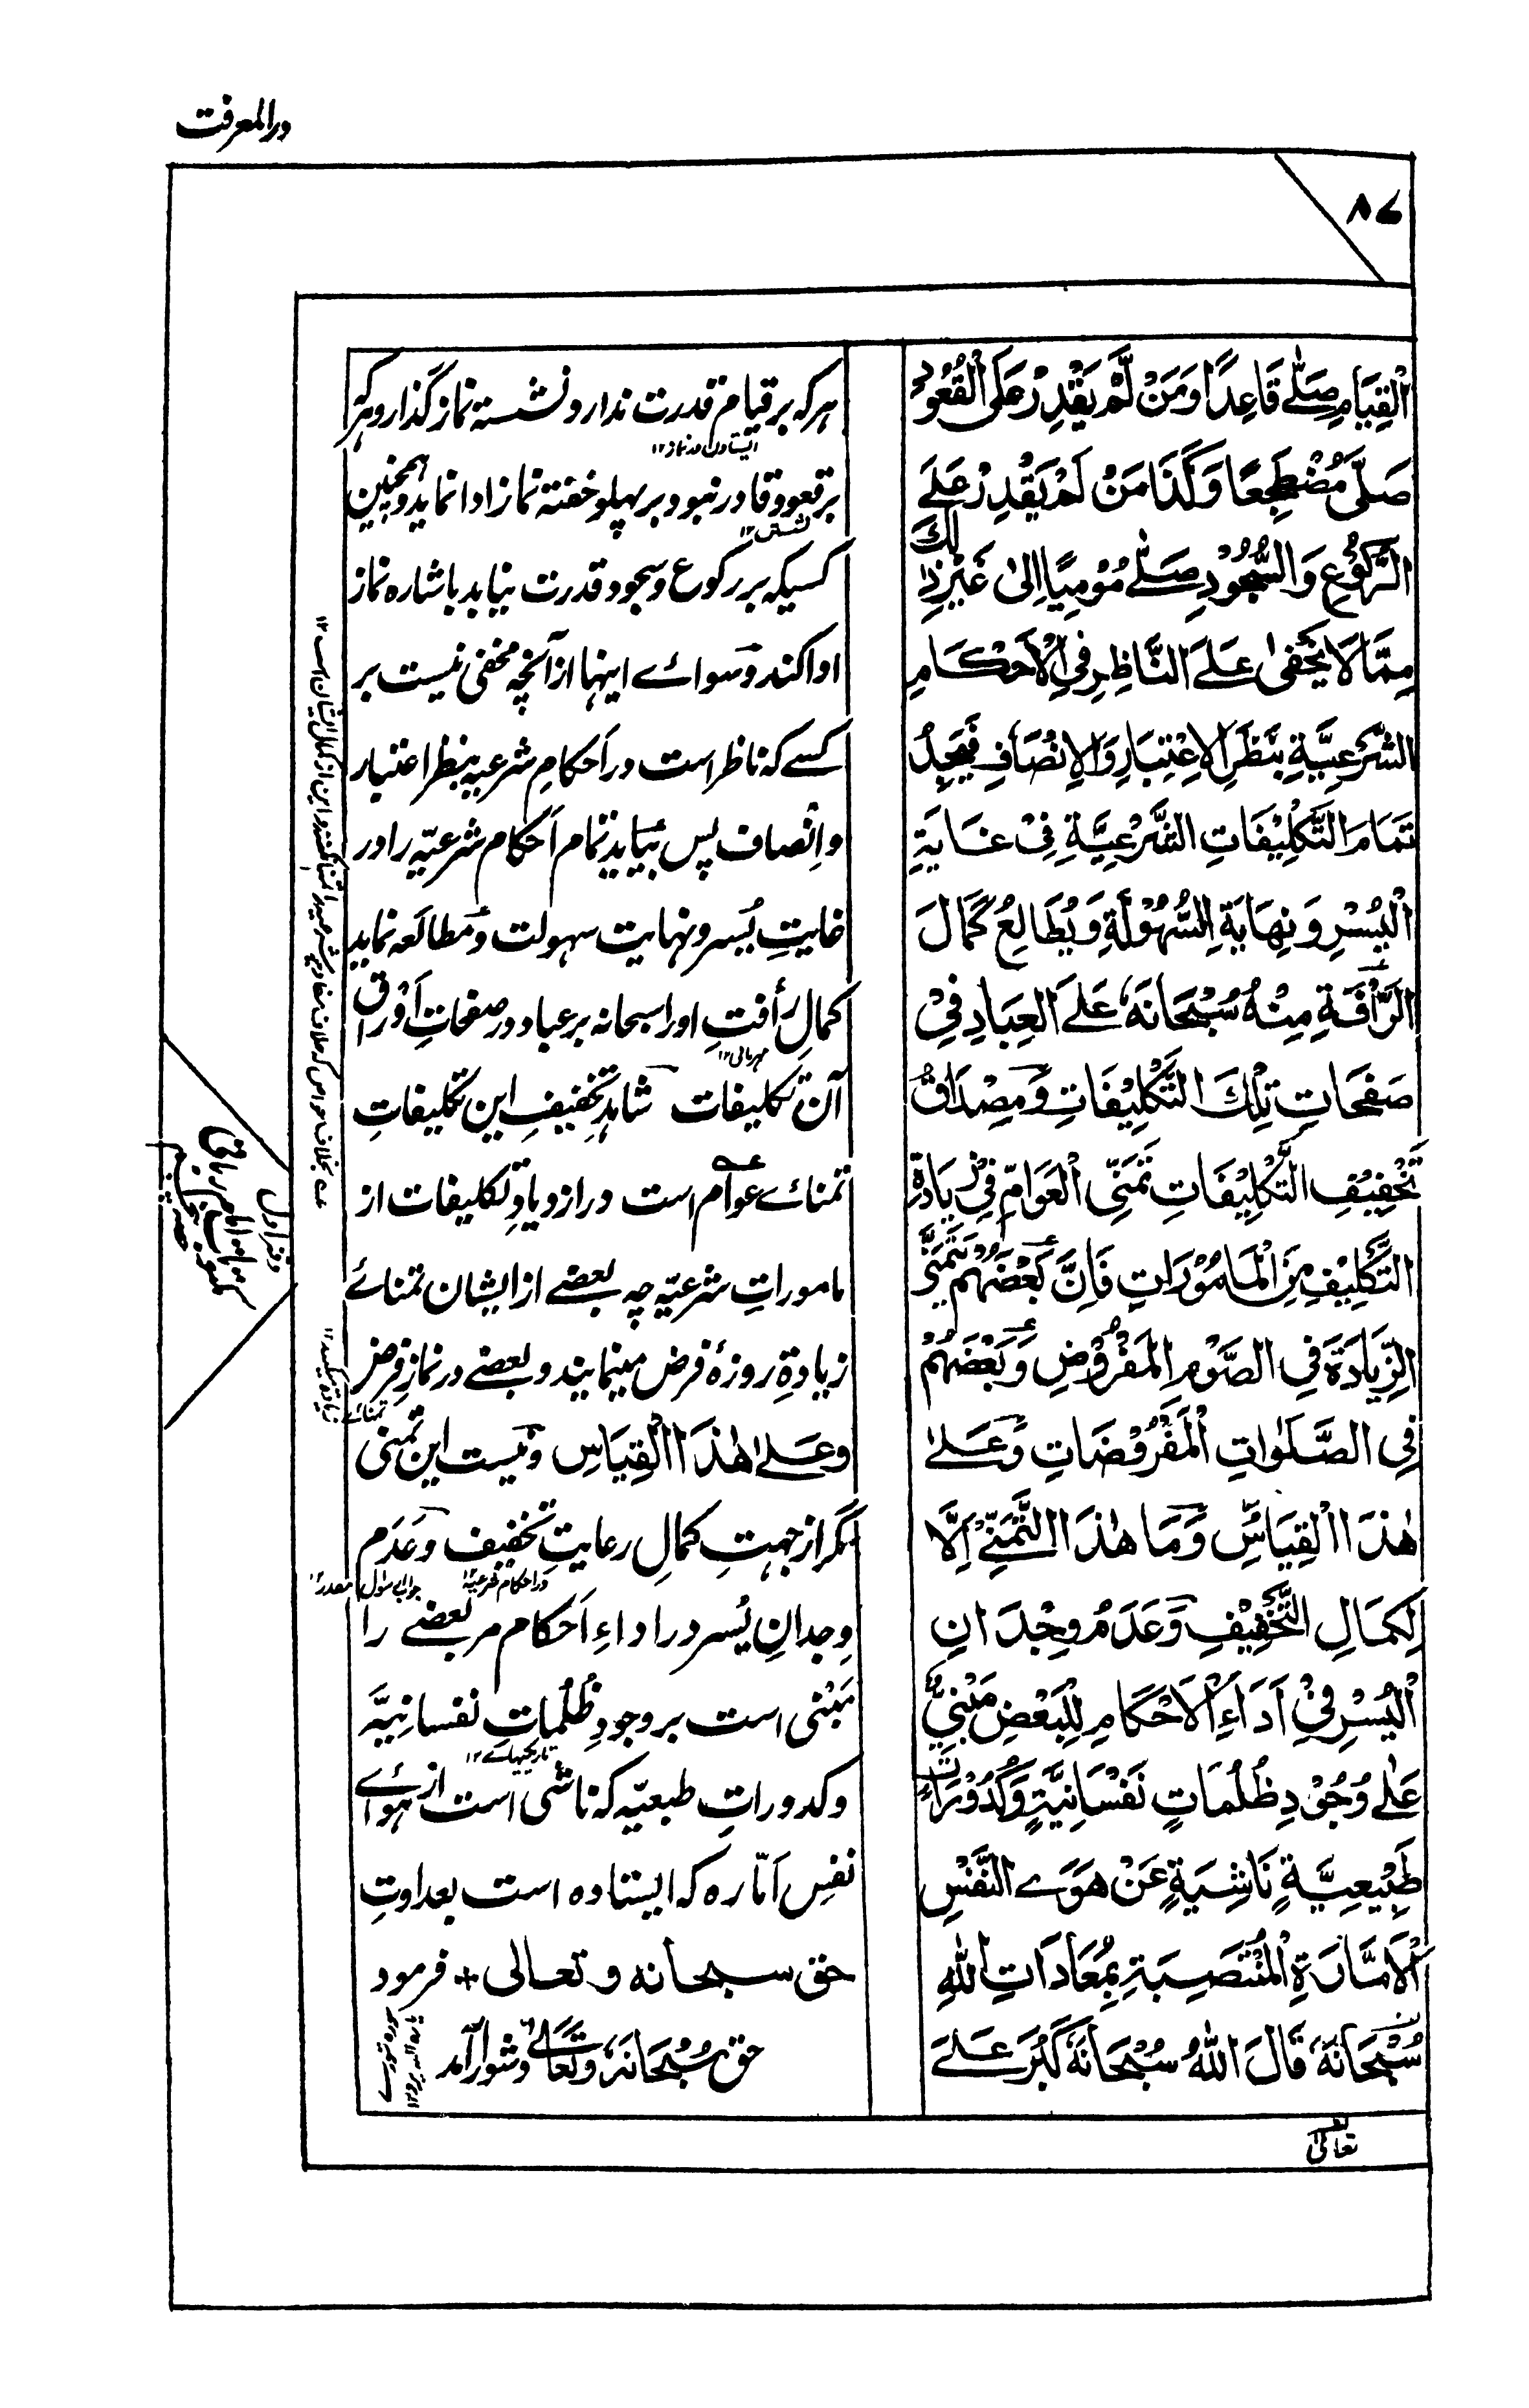 در المعرفت
٨٧
الْقِيَامِ صَلّٰے قَاعِدًا وَمَنْ لَّمْ يَقْدِرْ عَلَى الْقُعُوْدِ
صَلّٰى مُضْطَجِعًا وَكَذَا مَنْ لَمْ يَقْدِرْ عَلَے
الرُّكُوْعِ وَالسُّجُوْدِ صَلّٰے مُوْمِيًا اِلٰى غَيْرِ ذٰلِكَ
مِمَّا لَا يَخْفٰى عَلَے النَّاظِرِ فِي الْاَحْكَامِ
الشَّرْعِيَّةِ بِنَظَرِ الْاِعْتِبَارِ وَالْاِنْصَافِ فَيَجِدُ
تَمَامَ التَّكْلِيْفَاتِ الشَّرْعِيَّةِ فِىْ غَايَةِ
الْيُسْرِ وَنِهَايَةِ السُّهُوْلَةِ وَيُطَالِعُ كَمَالَ
الرَّأْفَةِ مِنْهُ سُبْحَانَهٗ عَلَے الْعِبَادِ فِىْ
صَفَحَاتِ تِلْكَ التَّكْلِيْفَاتِ وَمِصْدَاقُ
تَخْفِيْفِ التَّكْلِيْفَاتِ تَمَنِّى الْعَوَامِّ فِىْ زِيَادَةِ
التَّكْلِيْفِ مِنَ الْمَامُوْرَاتِ فَاِنَّ بَعْضَهُمْ يَتَمَنّٰى
الزِّيَادَةَ فِى الصَّوْمِ الْمَفْرُوْضِ وَبَعْضَهُمْ
فِى الصَّلَوَاتِ الْمَفْرُوْضَاتِ وَعَلٰے
هٰذَا الْقِيَاسِ وَمَا هٰذَا التَّمَنِّىْ اِلَّا
لِكَمَالِ التَّخْفِيْفِ وَعَدَمُ وِجْدَانِ
الْيُسْرِ فِىْ اَدَاءِ الْاَحْكَامِ لِلْبَعْضِ مَبْنِىٌّ
عَلٰے وُجُوْدِ ظُلُمَاتٍ نَفْسَانِيَّةٍ وَكُدُوْرَاتٍ
طَبِيْعِيَّةٍ نَاشِيَةٍ عَنْ هَوَےِ النَّفْسِ
الْاَمَّارَةِ الْمُنْتَصِبَةِ بِمُعَادَاتِ اللّٰهِ
سُبْحَانَهٗ قَالَ اللّٰهُ سُبْحَانَهٗ كَبُرَ عَلَے
تعالىٰ
هر که بر قیام قدرت ندارد نشسته نماز گذارد و هر که
ایستادن در نماز ۱۲
بر قعود قادر نبود بر پهلو خفته نماز ادا نماید و همچنین
نشستن ۱۲
کسیکه بر رکوع و سجود قدرت نیابد باشاره نماز
ادا کند و سوائے اینها از آنچه مخفی نیست بر
کسے که ناظر است در اَحکامِ شرعیه بنظر اعتبار
و اِنصاف پس بیابد تمام اَحکام شرعیّه را در
غایتِ یُسر و نهایت سهولت و مطالَعه نماید
کمالِ رأفتِ او را سبحانه بر عباد در صفحاتِ اَوراق
مهربانی ۱۲
آن تکلیفات شاهدِ تخفیفِ این تکلیفاتِ
تمنائے عوام است در ازدیادِ تکلیفات از
ماموراتِ شرعیّه چه بعضے از ایشان تمنائے
زیادةِ روزهٔ فرض مینمایند و بعضے در نمازِ فرض
تمنائے زیادة میکنند ۱۲
و عَلٰے هٰذَا الْقِیَاسِ و نیست این تمنی
مگر از جهتِ کمالِ رعایتِ تخفیف و عَدَم
در احکام شرعیّه جواب سوال مقدر ۱۲
وِجدانِ یُسر در اداءِ اَحکام مر بعضے را
مَبْنی است بر وجودِ ظُلُماتِ نفسانیَّه
تاریکیهاے ۱۲
و کدوراتِ طبعیّه که ناشی است از هوائے
نفسِ اَمّاره که ایستاده است بعداوتِ
حق سبحانه و تعالى + فرمود
حق سُبْحَانَهٗ وَتَعَالٰى دشوار آمد
دفتر اول